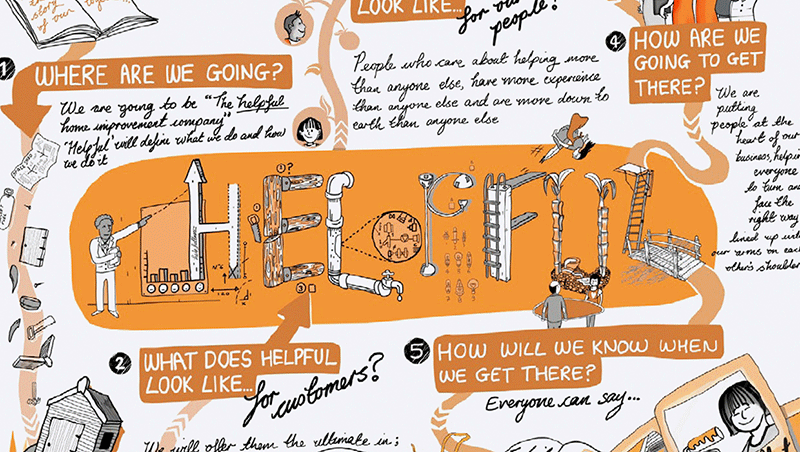 story
of our
LOOK LIKE...
for our
people!
1
WHERE ARE WE GOING?
We are going to be "The helpful
home improvement company"
'Helpful' will define what we do and how
we do it
People who care about helping more
than anyone else, have more experience
than anyone else and are more down to
earth than anyone else
4
HOW ARE WE
GOING TO GET
THERE?
We are
putting
people at the
heart of our
business, helpin
everyone
to turn and
face the
right way
lined up with
our arms on each
other's shoulder
HELPFUL
1 ?
3
2
WHAT DOES HELPFUL
LOOK LIKE...
for customers?
We will offer them the ultimate in;
5
HOW WILL WE KNOW WHEN
WE GET THERE?
Everyone can say...